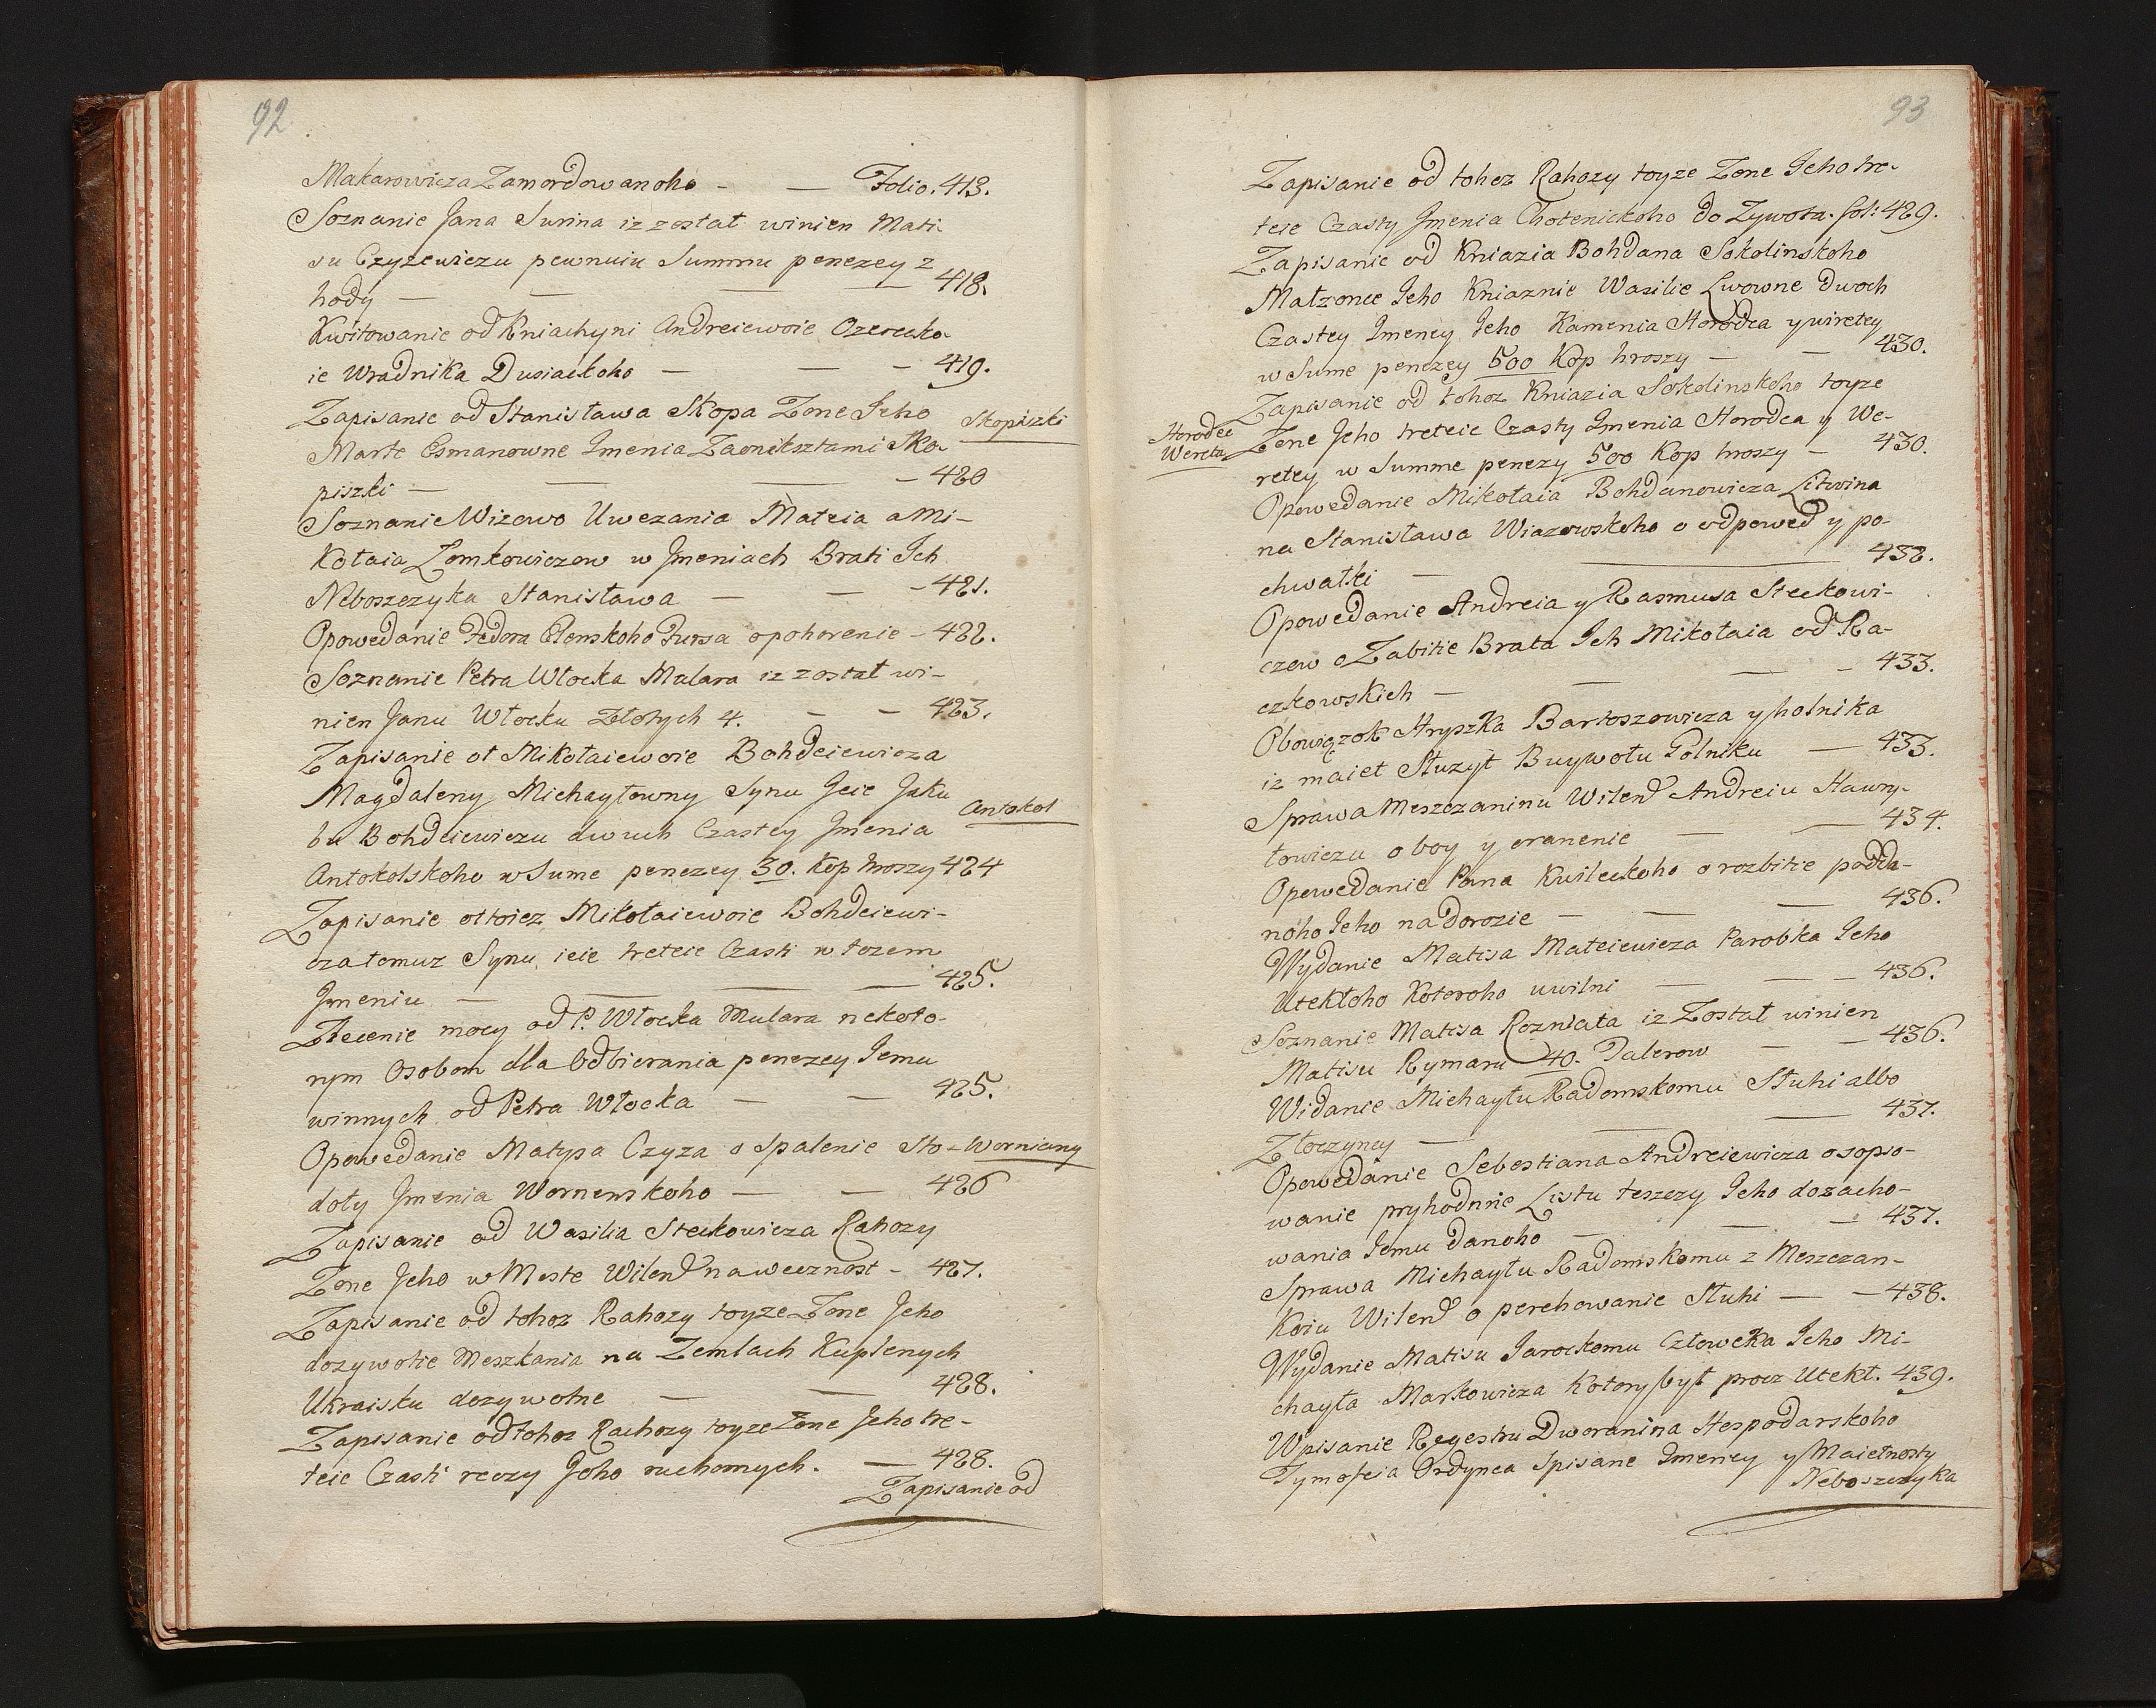 92
Makarowicza Zamordowanoho - — Folio. 413.
Soznanie Jana Surina iz zostal winien Mati-
su Czyzewiczu pewnuiu Summu penezey z
hody — — — — 418.
Kwitowanie od Kniachyni Andreiewoie Ozerecko-
ie Wradnika Dusiackoho — — - 419.
Zapisanie od Stanisława Skopa Zone Jeho
Skopiszki
Marte Esmanowne Jmenia Zaoniksztami Sko-
piszki — — — - 420
Soznanie Wizowo Uwezania Mateia a Mi-
kołaia Zomkowiczow w Jmeniach Brati Jch
Neboszczyka Stanisława — — - 421.
Opowedanie Fedora Elenskoho Pursa o pohorenie - 422.
Soznanie Petra Włocka Mulara iz został wi-
nien Janu Włocku Złotych 4. — - 423.
Zapisanie ot Mikołaiewoie Bohdeiewicza
Magdaleny Michayłowny Synu Jeie Jaku
Antokol
bu Bohdeiewiczu dwuch Czastey Jmenia
Antokolskoho w Sume penezey 30. Kop hroszy 424
Zapisanie ottoiez Mikołaiewoie Bohdeiewi-
cza tomuz Synu ieie treteie Czasti w tozem
Jmeniu — — — — 425.
Zlecenie mocy od P. Włocka Mulara nekoto-
rym Osobom dla Odbierania penezey Jemu
winnych od Petra Włocka — — 425.
Opowedanie Matysa Czyza o Spalenie Sto-
Worniany
doły Jmenia Wornenskoho — — 426
Zapisanie od Wasilia Steckowicza Rahozy
Zone Jeho w Meste Wilend na wecznost - 427.
Zapisanie od tohoz Rahozy toyze Zone Jeho
dozywotie Meszkania na Zemlach Kuplenych
Ukraisku dozywotne — — 428.
Zapisanie od tohoz Rachozy toyze Zone Jeho tre-
teie Czasti reczy Jeho ruchomych. — 428.
Zapisanie od
93
Zapisanie od tohoz Rahozy toyze Zone Jeho tre-
teie Czasty Jmenia Chotenickoho do Zywota. fol: 429.
Zapisanie od Kniazia Bohdana Sokolinskoho
Małzonce Jeho Kniaznie Wasilie Lwowne dwoch
Czastey Jmeney Jeho Kamenia Horodca y wiretey
w Sume penezey 500 Kop hroszy — — 430.
Zapisanie od tohoz Kniazia Sokolinskoho toyze
Horodec
Wereta
Zone Jeho treteie Czasty Jmenia Horodca y We-
retey w Summe penezy 500 Kop hroszy - 430.
Opowedanie Mikołaia Bohdanowicza Litwina
na Stanisława Wiazowskoho o odpowed y po-
chwałki — — 432.
Opowedanie Andreia y Rasmusa Steckowi-
czow o Zabitie Brata Jch Mikołaia od Ra-
czkowskich — — — - 433.
Obowiązok Hryszka Bartoszowicza yholnika
iz maiet Służyt Buywołu Golniku — 433.
Sprawa Meszczaninu Wilend Andreiu Hawry-
łowiczu o boy y oranenie — — 434.
Opowedanie Pana Kwileckoho o rozbitie podda-
noho Jeho na dorozie — — — 436.
Wydanie Matisa Mateiewicza Parobka Jeho
Utekłoho Kotoroho uwilni — — - 436.
Soznanie Matisa Rozniata iz Został winien
Matisu Rymaru 40. Talerow — - 436.
Widanie Michayłu Radomskomu Słuhi albo
Złoczyncy — — — 437.
Opowedanie Sebestiana Andreiewicza o sopso-
wanie pryhodnie Listu teszczy Jeho dozacho-
wania Jemu danoho — — - 437.
Sprawa Michayłu Radomskomu z Meszczan-
Koiu Wilend o perehowanie Słuhi — - 438.
Wydanie Matisu Jarockomu Człoweka Jeho Mi-
chayła Markowicza Kotory był procz Utekł. 439.
Wpisanie Regestru Dworanina Hospodarskoho
Tymofeia Ordynca Spisane Jmeney y Maietnosty
Neboszczyka